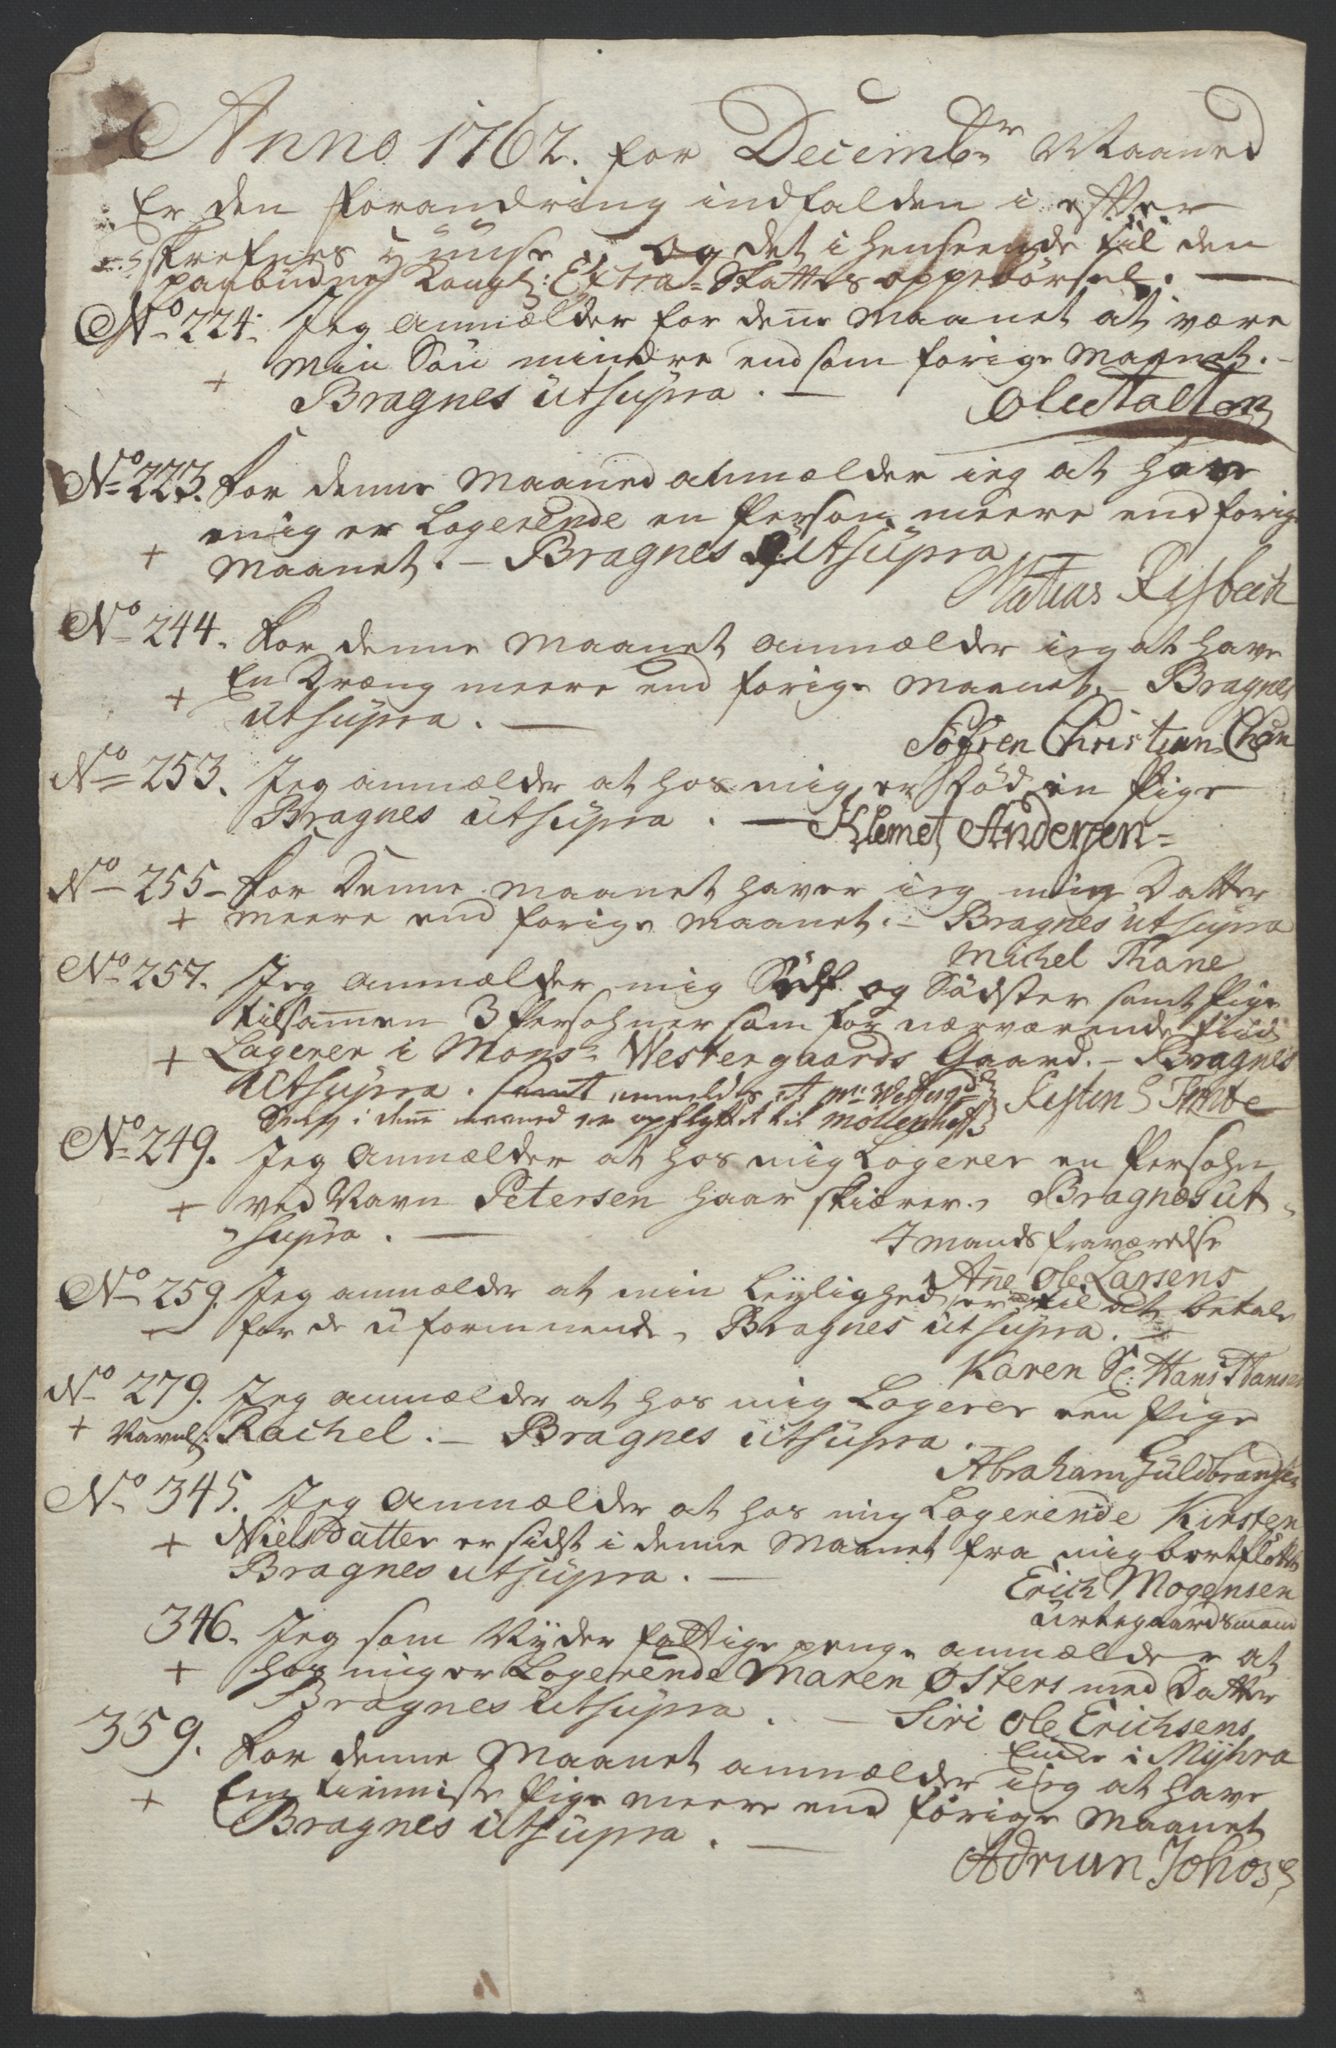 Anno 1762. for Decembr Maaned
Er den forandring indfalden i efter
skrefnes Huuse, og det i henseende til den
paabudne Kongl: Extra-Skattes oppebörsel.
No 224. Jeg anmælder for denne Maanet at være
min Sön mindre end som forige Maanet.
+ Bragnes ut supra. Ole Halt
No 223. For denne Maaned anmælder ieg at hos
mig er Logerende en Person meere end forige
+ Maanet. Bragnes ut supra
Matias Rysbech
No 244. For denne Maanet anmælder ieg at have
+ En Dræng meere end forige Maanet. Bragnes
ut supra.
Söfren Christian
No 253. Jeg anmælder at hos mig er Föd en Pige
Bragnes ut supra. Klemet Andersen
No 255 For Denne Maanet haver ieg min Datter
+ meere end forige Maanet. Bragnes ut supra
Michel Thane
No 257. Jeg anmælder mig Self og Södster samt Pige
tilsamen 3 Persohner som for nærværende tiid
+ Logerer i Monsr Westergaards Gaard. Bragnes
ut supra. samt anmeldes at
i denne maaned er opflyttet til
No 249. Jeg Anmælder at hos mig Logerer en Persohn
+ ved Navn Petersen haar skiærer. Bragnes ut
supra.
I mands fraværelse
Ane Ole Larsens
No 259. Jeg anmælder at min Leylighed er ej til at betale
for de uformuende, Bragnes ut supra.
Karen Sl: Hans Hansen
No 279. Jeg anmælder at hos mig Logerer een Pige
+ Navnl: Rachel. Bragnes ut supra.
Abraham Guldbrandsen
No 345. Jeg Anmælder at hos mig Logerende Kirsten
+ NielsDatter er sidst i denne Maanet fra mig bortflöttet
Bragnes ut supra.
Erich Mogensen
Urtegaardsmand
346. Jeg som Nyder fattige penge anmælder at
+ hos mig er Logerende Maren Osters med Datter
Bragnes ut supra. Siri Ole Erichsens
Enke i Myhra
359. For denne Maanet anmælder ieg at have
+ En tienniste Pige meere end forige Maanet
Bragnes ut supra.
Adrian